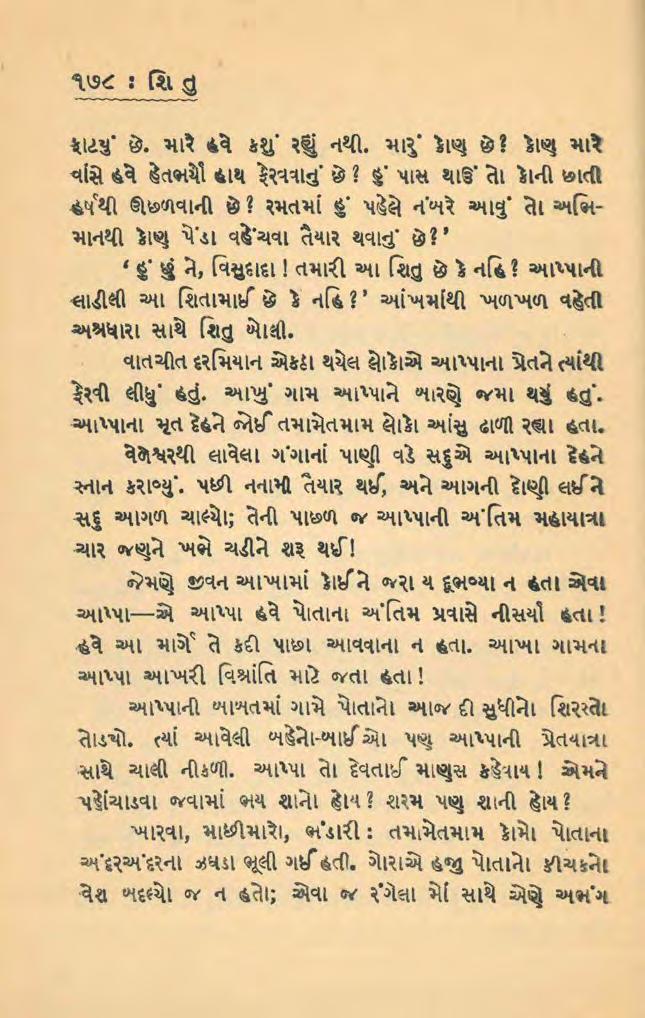 ૧૭૮ : શિ તુ
ફાટયું છે. મારે હવે કશું રહ્યું નથી. મારું કોણ છે? કોણ મારે
વાંસે હવે હેતભર્યો હાથ ફેરવવાનું છે? હું પાસ થાઉં તો કોની છાતી
હર્ષથી ઊછળવાની છે? રમતમાં હું પહેલે નંબરે આવું તો અભિ-
માનથી કોણ પેંડા વહેંચવા તૈયાર થવાનું છે?’
‘હું છું ને, વિસુદાદા! તમારી આ શિતુ છે કે નહિ? આપ્પાની
લાડીલી આ શિતામાઈ છે કે નહિ?’ આંખમાંથી ખળખળ વહેતી
અશ્રધારા સાથે શિતુ બોલી.
વાતચીત દરમિયાન એકઠા થયેલ લોકોએ આપ્પાના પ્રેતને ત્યાંથી
ફેરવી લીધું હતું. આખું ગામ આપ્પાને બારણે જમા થયું હતું.
આપ્પાના મૃત દેહને જોઈ તમામેતમામ લોકો આંસુ ઢાળી રહ્યા હતા.
વેળેશ્વરથી લાવેલા ગંગાનાં પાણી વડે સદુએ આપ્પાના દેહને
સ્નાન કરાવ્યું. પછી નનામી તૈયાર થઈ, અને આગની દોણી લઈને
સદુ આગળ ચાલ્યો; તેની પાછળ જ આપ્પાની અંતિમ મહાયાત્રા
ચાર જણને ખભે ચડીને શરૂ થઈ!
જેમણે જીવન આખામાં કોઈને જરા ય દૂભવ્યા ન હતા એવા
આપ્પા—એ આપ્પા હવે પોતાના અંતિમ પ્રવાસે નીસર્યા હતા!
હવે આ માર્ગે તે કદી પાછા આવવાના ન હતા. આખા ગામના
આપ્પા આખરી વિશ્રાંતિ માટે જતા હતા!
આપ્પાની બાબતમાં ગામે પોતાનો આજ દી સુધીનો શિરસ્તો
તોડયો. ત્યાં આવેલી બહેનો-બાઈઓ પણ આપ્પાની પ્રેતયાત્રા
સાથે ચાલી નીકળી. આપ્પા તો દેવતાઈ માણુસ કહેવાય! એમને
પહોંચાડવા જવામાં ભય શાનો હોય? શરમ પણ શાની હોય?
ખારવા, માછીમારો, ભંડારી: તમામેતમામ કોમો પોતાના
અંદરઅંદરના ઝઘડા ભૂલી ગઈ હતી. ગોરાએ હજુ પોતાનો કીચકનો
વેશ બદલ્યો જ ન હતો; એવા જ રંગેલા મોં સાથે એણે અભંગ